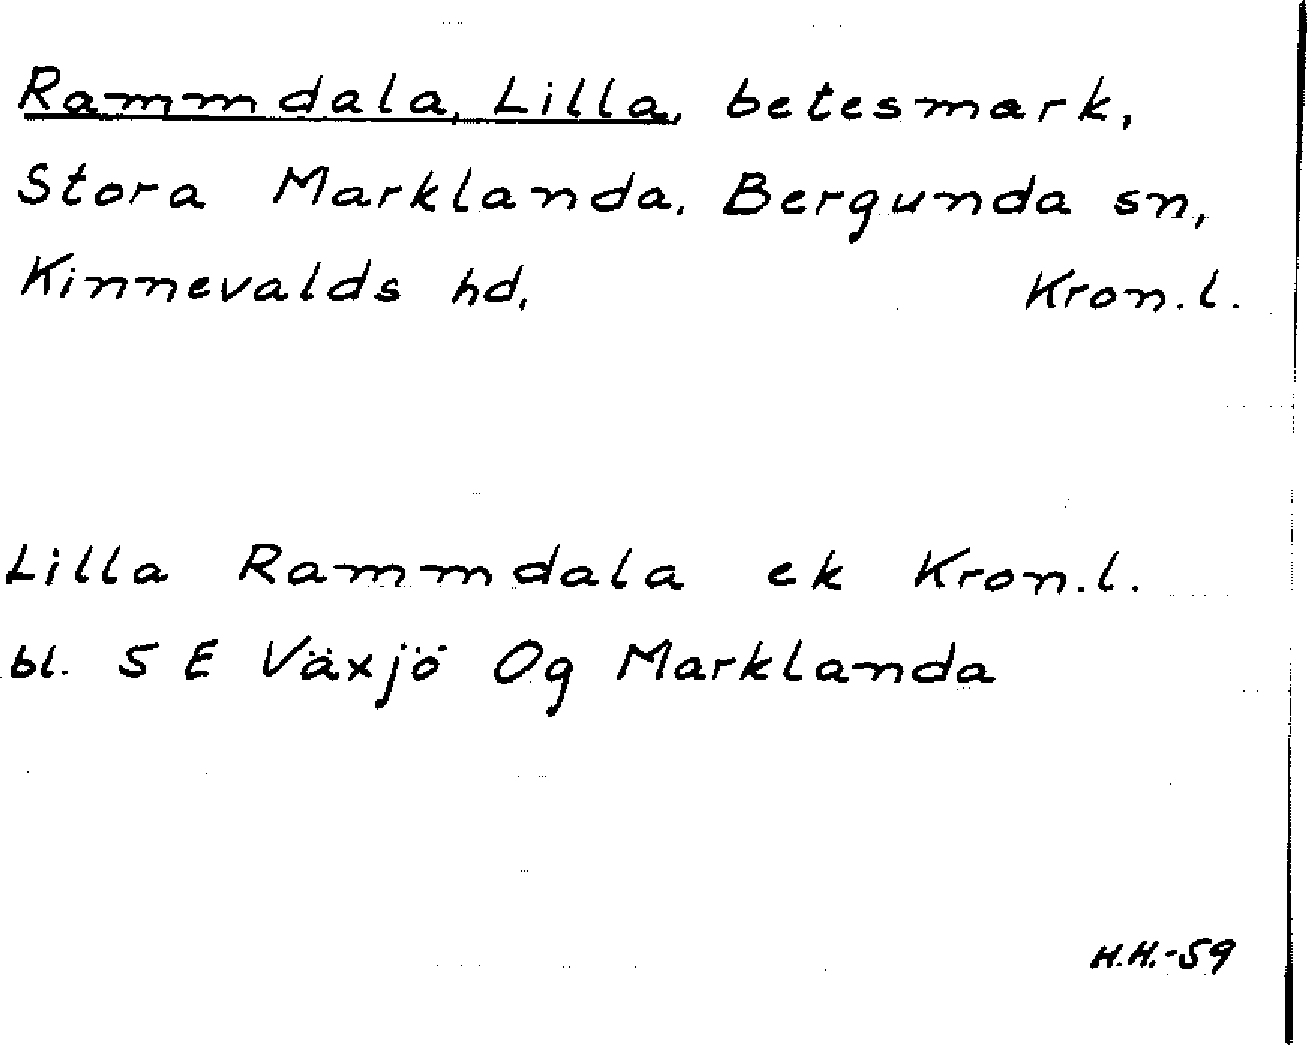 Rammdala, Lilla, betesmark,
Stora Marklanda. Bergunda sn,
Kinnevalds hd, Kron.l.
Lilla Rammdala ek Kron.l.
bl. 5 E Växjö Og Marklanda
H.H.-59